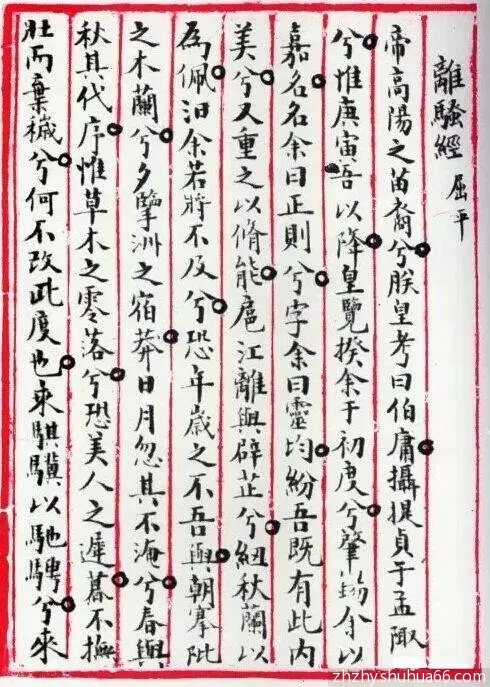 離騷經 屈平
帝高陽之苗裔兮朕皇考曰伯庸攝提貞于孟陬
兮惟庚寅吾以降皇覽揆余于初度兮肇錫余以
嘉名名余曰正則兮字余曰靈均紛吾既有此内
美兮又重之以脩能扈江離與辟芷兮紉秋蘭以
為佩汨余若將不及兮恐年歲之不吾與朝搴阰
之木蘭兮夕擥洲之宿莽日月忽其不淹兮春與
秋其代序惟草木之零落兮恐美人之遲暮不撫
壯而棄穢兮何不改此度也来騏驥以馳騁兮来
zhzhyshuhua66.com